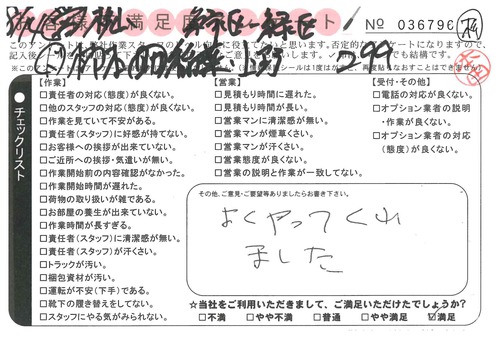 お客様満足度アンケート
No 036796
チェックリスト
【作業】
□責任者の対応(態度)が良くない。
□他のスタッフの対応(態度)が良くない。
□作業を見ていて不安がある。
□責任者(スタッフ)に好感が持てない。
□お客様への挨拶が出来ていない。
□ご近所への挨拶・気遣いが無い。
□作業開始前の内容確認がなかった。
□作業開始時間が遅れた。
□荷物の取り扱いが雑である。
□お部屋の養生が出来ていない。
□作業時間が長すぎる。
□責任者(スタッフ)に清潔感が無い。
□責任者(スタッフ)が汗くさい。
□トラックが汚い。
□梱包資材が汚い。
□運転が不安(下手)である。
□靴下の履き替えをしてない。
□スタッフにやる気がみられない。
【営業】
□見積もり時間に遅れた。
□見積もり時間が長い。
□営業マンに清潔感が無い。
□営業マンが煙草くさい。
□営業マンが汗くさい。
□営業態度が良くない。
□営業の説明と作業が一致してない。
【受付・その他】
□電話の対応が良くない。
□オプション業者の説明
・作業が良くない。
□オプション業者の対応
(態度)が良くない。
その他、ご意見・ご要望等ありましたらお書き下さい。
よくやってくれ
ました
☆当社をご利用いただきまして、ご満足いただけたでしょうか?
□不満 □やや不満 □普通 □やや満足 ☑満足